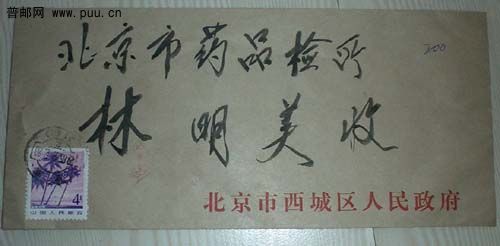 普邮网
www.puu.cn
北京市药品检所
林明美收
4分
中国人民邮政
北京市西城区人民政府